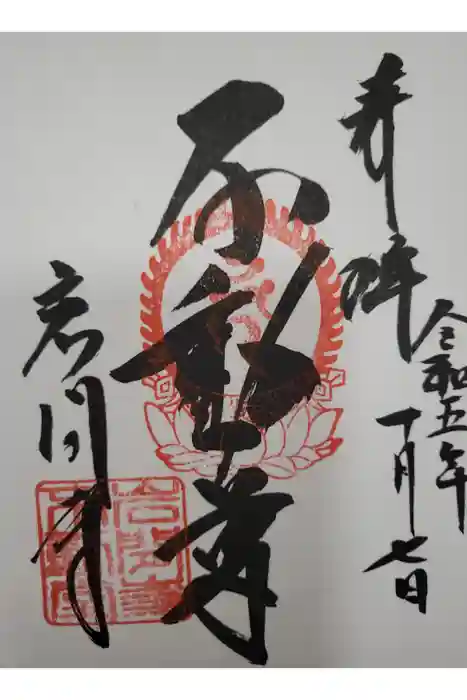 奉拝
令和五年
十月七日
不動尊
岩間寺